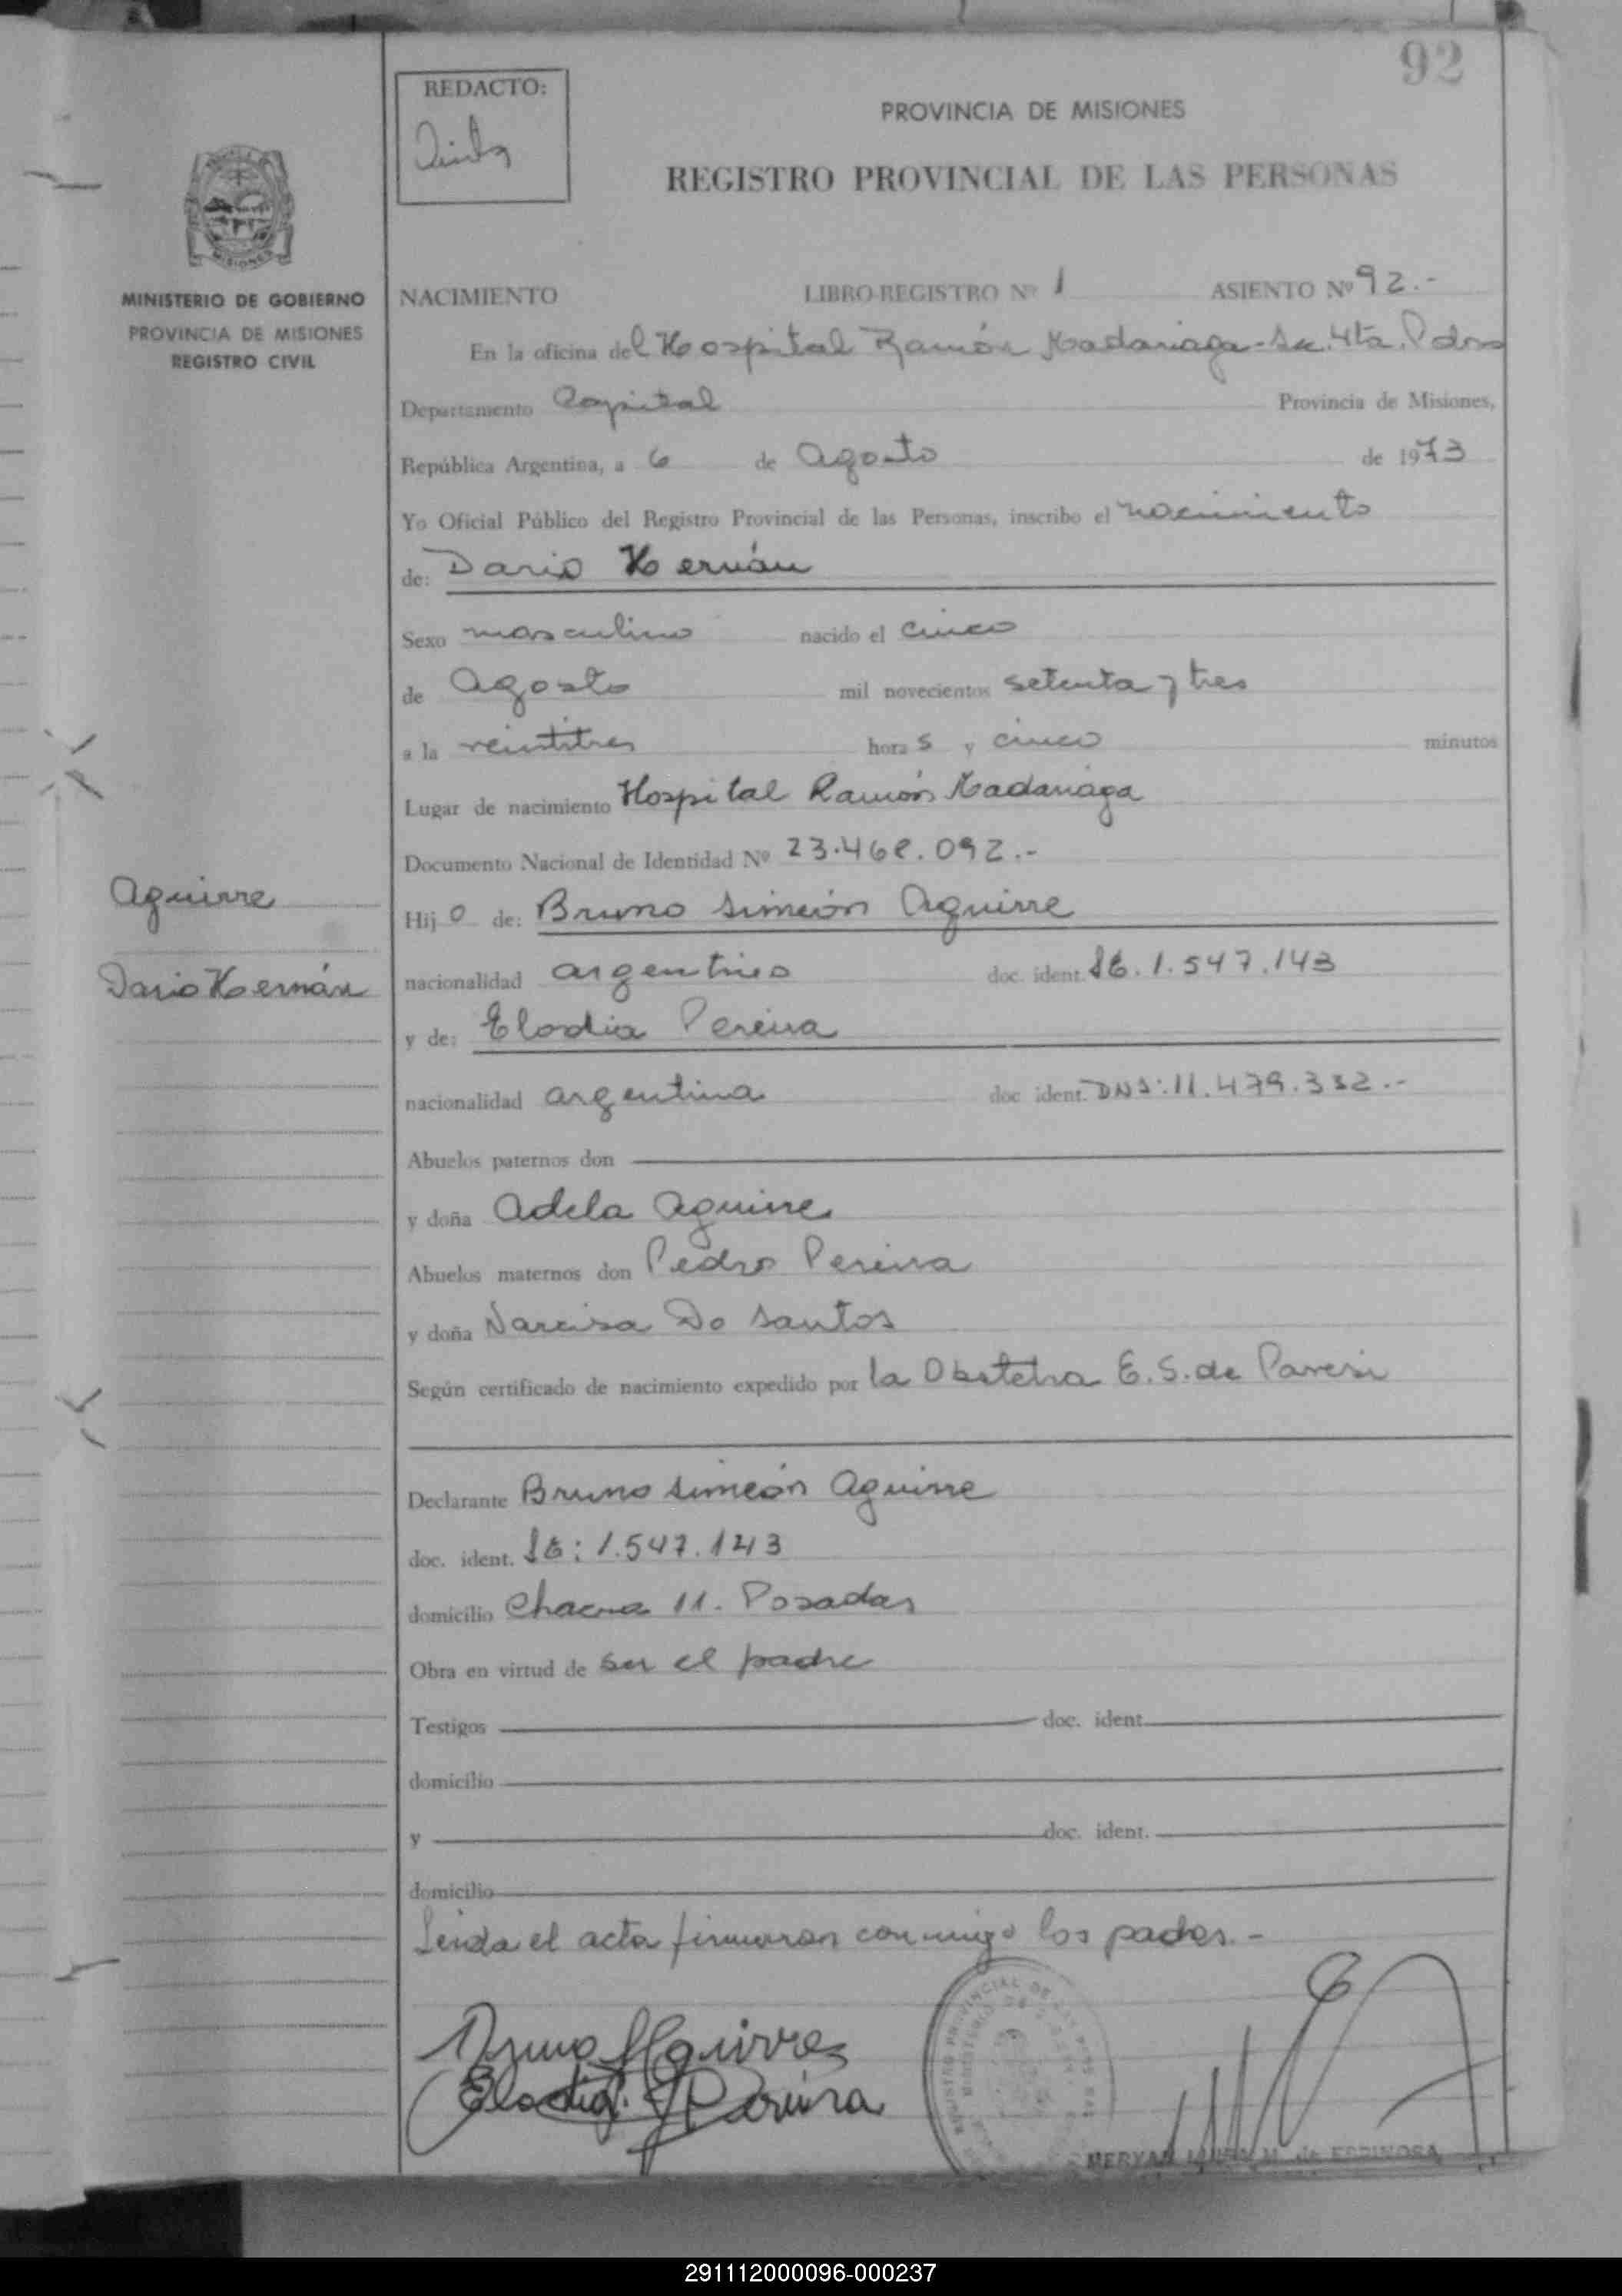 92
REDACTO:
PROVINCIA DE MISIONES
REGISTRO PROVINCIAL DE LAS PERSONAS
MISIONES
MINISTERIO DE GOBIERNO
PROVINCIA DE MISIONES
REGISTRO CIVIL
NACIMIENTO LIBRO-REGISTRO Nº 1 ASIENTO Nº 92.-
En la oficina del Hospital Ramón Madariaga - Sec. 4ta. Pdas
Departamento Capital Provincia de Misiones,
República Argentina, a 6 de Agosto de 1973
Yo Oficial Público del Registro Provincial de las Personas, inscribo el nacimiento
de: Dario Hernán
Sexo masculino nacido el cinco
de Agosto mil novecientos setenta y tres
a la veintitres hora s y cinco minutos
Lugar de nacimiento Hospital Ramón Madariaga
Documento Nacional de Identidad Nº 23.468.092.-
Aguirre
Hij o de: Bruno Simeón Aguirre
Dario Hernán
nacionalidad argentino doc. ident. LE. 1.547.143
y de: Elodia Pereira
nacionalidad argentina doc. ident. DNI: 11.479.332.-
Abuelos paternos don
y doña Adela Aguirre
Abuelos maternos don Pedro Pereira
y doña Narcisa Do Santos
Según certificado de nacimiento expedido por la Obstetra E. S. de Paresi
Declarante Bruno Simeón Aguirre
doc. ident. LE: 1.547.143
domicilio Chacra 11. Posadas
Obra en virtud de ser el padre
Testigos doc. ident.
domicilio
y doc. ident.
domicilio
Leida el acta firmaron conmigo los padres.-
Bruno Aguirre
Elodia Pereira
M. de ESPINOSA
291112000096-000237